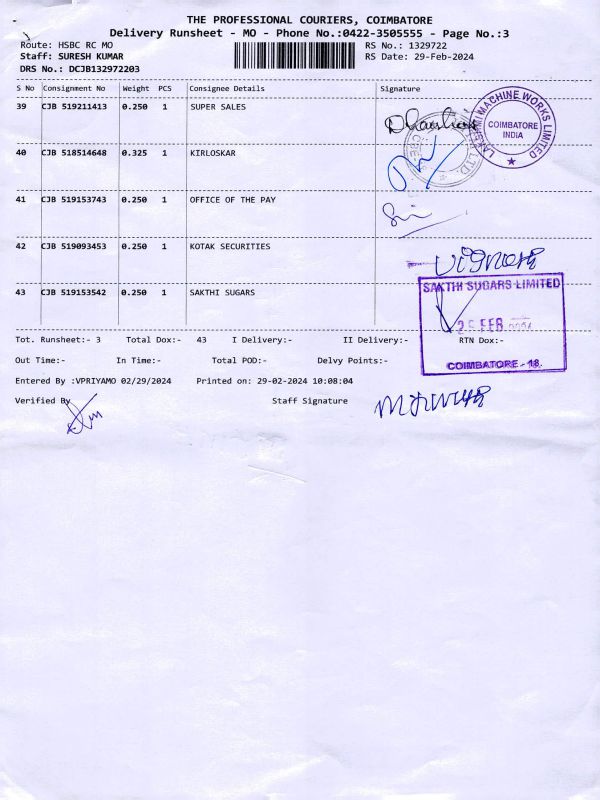 THE PROFESSIONAL COURIERS, COIMBATORE
Delivery Runsheet - MO - Phone No.:0422-3505555 - Page No.:3
Route: HSBC RC MO RS No.: 1329722
Staff: SURESH KUMAR RS Date: 29-Feb-2024
DRS No.: DCJB132972203
S No Consignment No Weight PCS Consignee Details Signature
39 CJB 519211413 0.250 1 SUPER SALES
LAKSHMI MACHINE WORKS LIMITED
COIMBATORE
INDIA
40 CJB 518514648 0.325 1 KIRLOSKAR
41 CJB 519153743 0.250 1 OFFICE OF THE PAY
42 CJB 519093453 0.250 1 KOTAK SECURITIES
43 CJB 519153542 0.250 1 SAKTHI SUGARS
SAKTHI SUGARS LIMITED
FEB 2024
COIMBATORE - 18.
Tot. Runsheet:- 3 Total Dox:- 43 I Delivery:- II Delivery:- RTN Dox:-
Out Time:- In Time:- Total POD:- Delvy Points:-
Entered By :VPRIYAMO 02/29/2024 Printed on: 29-02-2024 10:08:04
Verified By Staff Signature